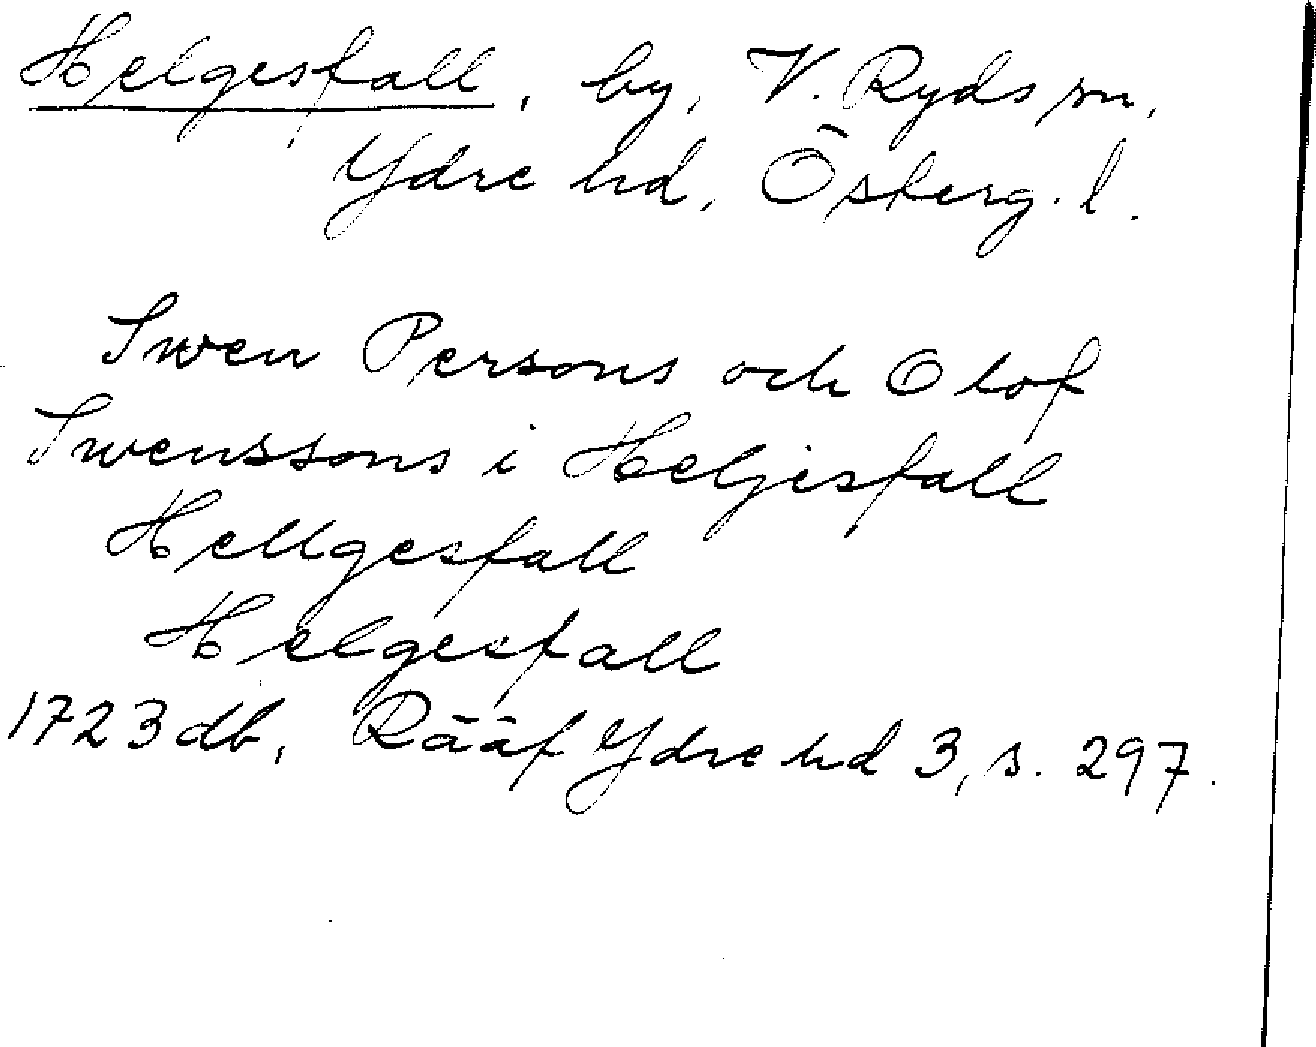 Helgesfall, by, V. Ryds sn,
Ydre hd, Österg. l.
Swen Persons och Olof
Swenssons i Heljesfall
Hellgesfall
Helgesfall
1723 db, Rääf Ydre hd 3, s. 297.